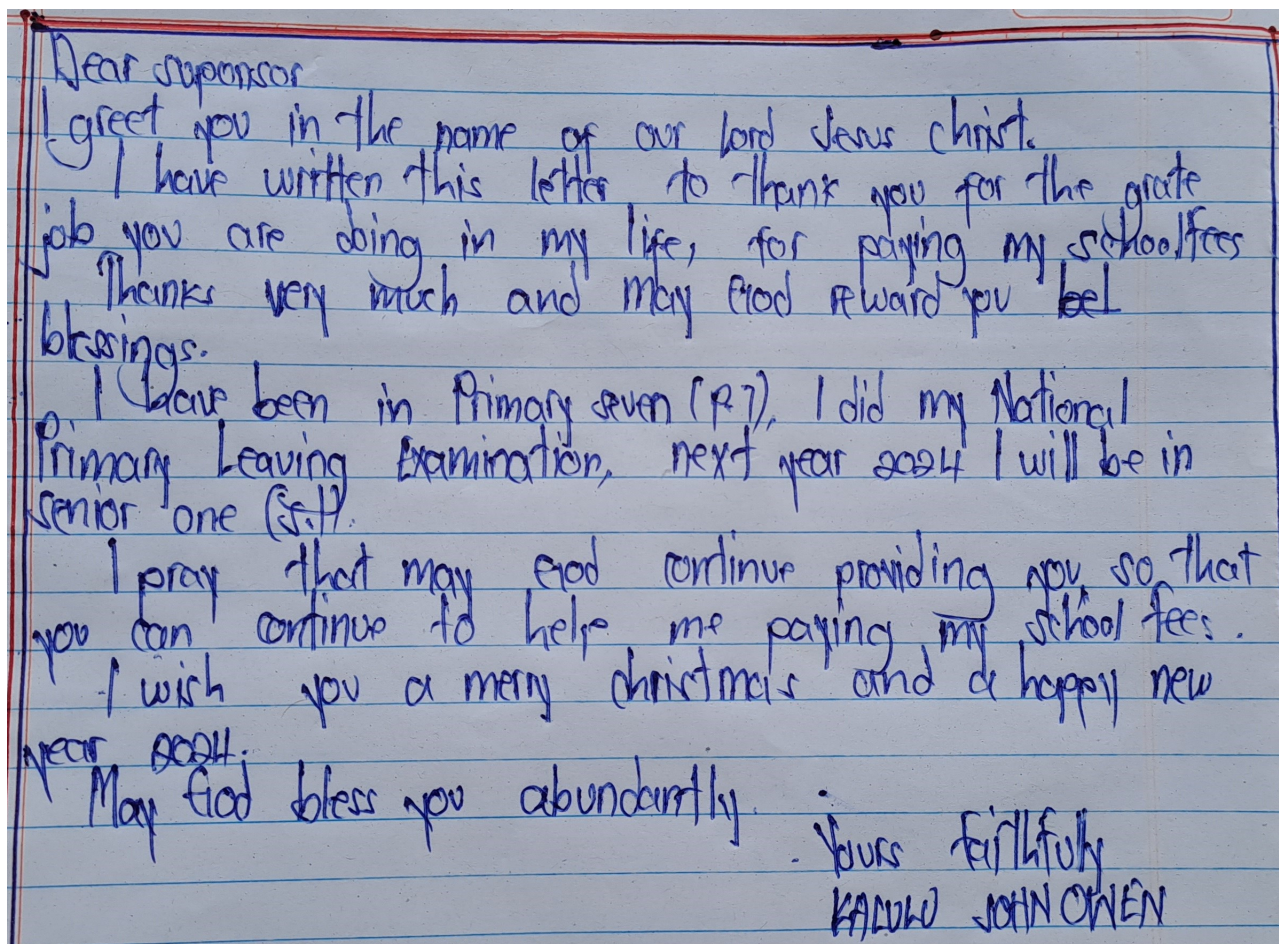 Dear suponsor
I greet you in the name of our lord Jesus christ.
I have written this letter to thank you for the grate
job you are doing in my life, for paying my schoolfees
Thanks very much and may God reward you bel
blessings.
I have been in Primary seven (P.7), I did my National
Primary Leaving Examination, next year 2024 I will be in
senior one (S.1).
I pray that may God continue providing you so that
you can continue to help me paying my school fees.
I wish you a merry christmas and a happy new
year 2024.
May God bless you abundantly.
Yours faithfully
KALULU JOHN OWEN